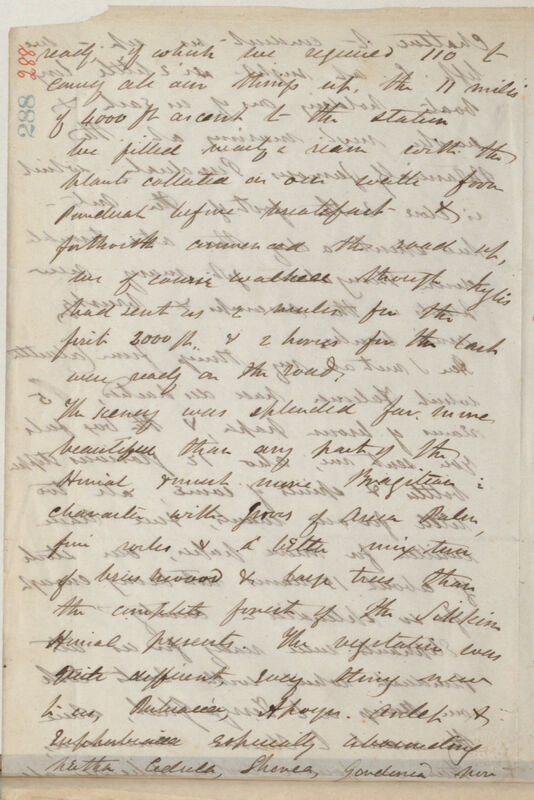 288
288
ready, of which we required 110 to
carry all our things up, the 11 miles
of 4000 ft ascent to the station
We filled nearly a ream with the
plants collected on our walk from
Punduah before breakfast &
forthwith commenced the road up,
we of course walked though Inglis
had sent us 2 mules for the
first 3000 ft. & 2 horses for the last
were ready on the road.
The scenery was splendid far more
beautiful than any part of the
Himal & much more Brazilian in
character with Groves of Areca Palm,
fine rocks & a better mixture
of brushwood & large trees than
the complete forest of the Sikkim
Himal presents. The vegetation was
quite different, every thing new
to us Rubiaceae, Apocyn. Asclep. &
Euphorbiaceae especially abounding
Cedrela, Shorea, Gardenia